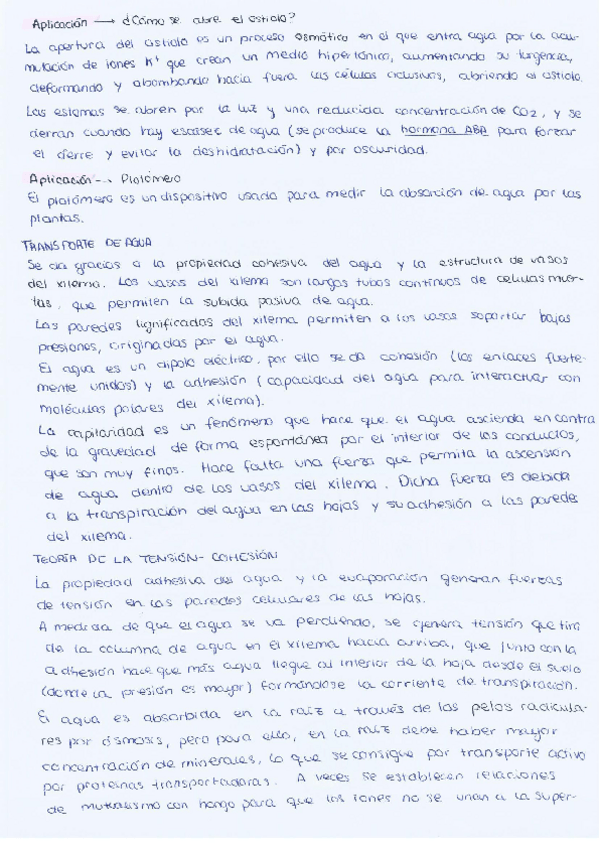 Aplicación → ¿Cómo se abre el ostiolo?
La apertura del ostiolo es un proceso osmótico en el que entra agua por la acu-
mulación de iones K+ que crean un medio hipertónico, aumentando su turgencia,
deformando y abombando hacia fuera las células oclusivas, abriendo el ostiolo.
Los estomas se abren por la luz y una reducida concentración de CO2, y se
cierran cuando hay escasez de agua (se produce la hormona ABA para forzar
el cierre y evitar la deshidratación) y por oscuridad.
Aplicación → Piotómero
El piotómero es un dispositivo usado para medir la absorción de agua por las
plantas.
TRANSPORTE DE AGUA
Se da gracias a la propiedad cohesiva del agua y la estructura de vasos
del xilema. Los vasos del xilema son largos tubos continuos de celulas muer-
tas, que permiten la subida pasiva de agua.
Las paredes lignificadas del xilema permiten a los vasos soportar bajas
presiones, originadas por el agua.
El agua es un dipolo eléctrico, por ello se da cohesión (los enlaces fuerte-
mente unidos) y la adhesión (capacidad del agua para interactuar con
moléculas polares del xilema).
La capilaridad es un fenómeno que hace que el agua ascienda en contra
de la gravedad de forma espontánea por el interior de los conductos,
que son muy finos. Hace falta una fuerza que permita la ascensión
de agua dentro de los vasos del xilema. Dicha fuerza es debida
a la transpiración del agua en las hojas y su adhesión a las paredes
del xilema.
TEORÍA DE LA TENSIÓN-COHESIÓN
La propiedad adhesiva del agua y la evaporación generan fuerzas
de tensión en las paredes celulares de las hojas.
A medida de que el agua se va perdiendo, se genera tensión que tira
de la columna de agua en el xilema hacia arriba, que junto con la
adhesión hace que más agua llegue al interior de la hoja desde el suelo
(donde la presión es mayor) formándose la corriente de transpiración.
El agua es absorbida en la raíz a través de los pelos radicula-
res por ósmosis, pero para ello, en la raíz debe haber mayor
concentración de minerales, lo que se consigue por transporte activo
por proteínas transportadoras. A veces se establecen relaciones
de mutualismo con hongo para que los iones no se unan a la super-